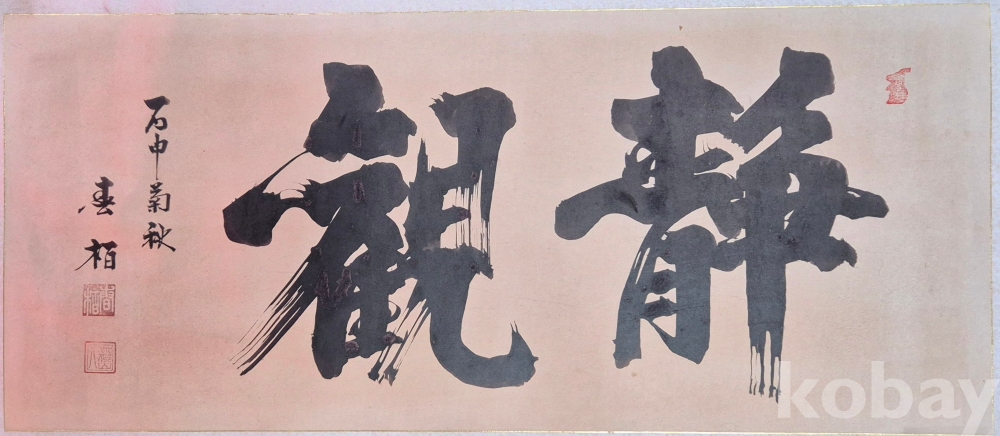 靜觀
丙申菊秋
春栢
kobay